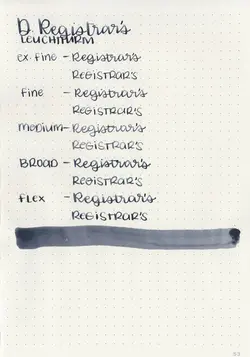 D. Registrar's
LEUCHTTURM
ex. fine - Registrar's
REGISTRAR'S
fine - Registrar's
REGISTRAR'S
medium - Registrar's
REGISTRAR'S
BROAD - Registrar's
REGISTRAR'S
FLEX - Registrar's
REGISTRAR'S